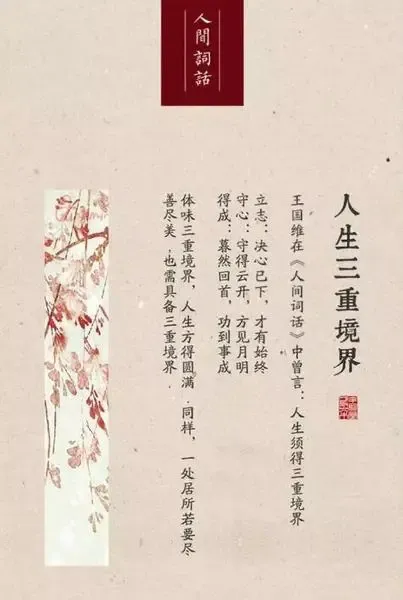 人間詞話
人生三重境界
王国维在《人间词话》中曾言：人生须得三重境界
立志：决心已下，才有始终
守心：守得云开，方见月明
得成：暮然回首，功到事成
体味三重境界，人生方得圆满．同样，一处居所若要尽
善尽美．也需具备三重境界．